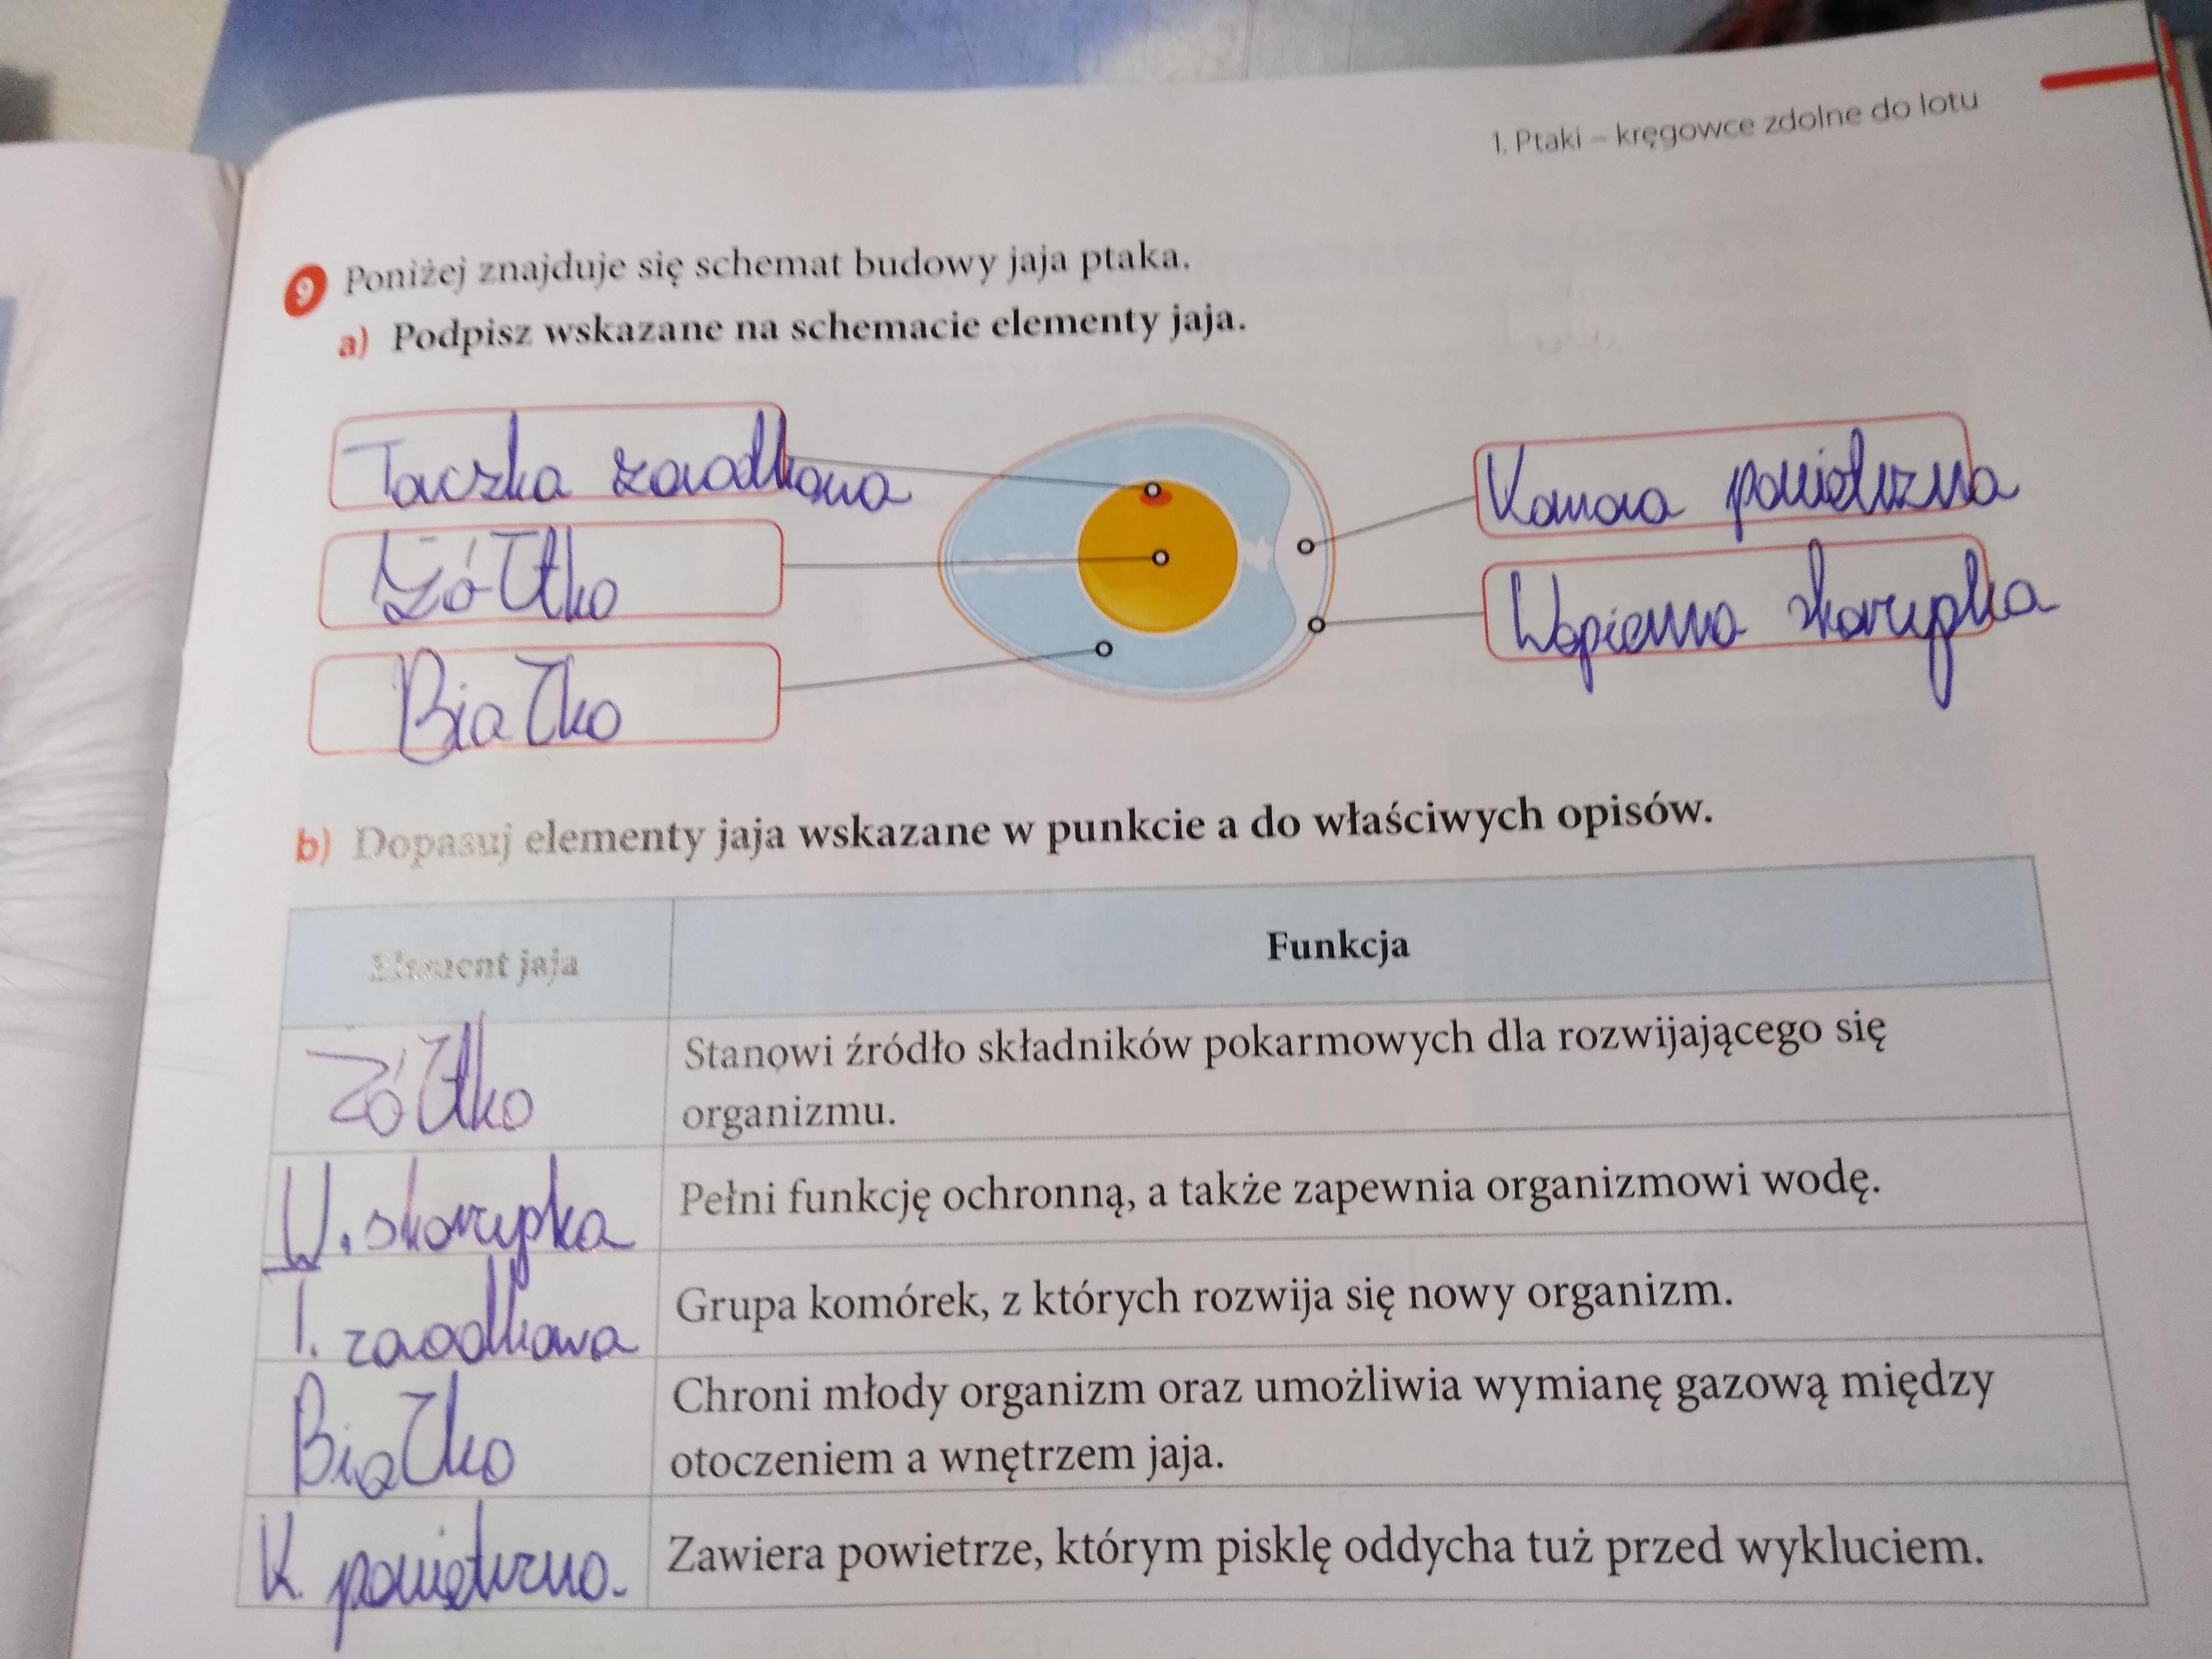 1. Ptaki – kręgowce zdolne do lotu
9 Poniżej znajduje się schemat budowy jaja ptaka.
a) Podpisz wskazane na schemacie elementy jaja.
Taczka zarodkowa
Żółtko
Białko
Komora powietrzna
Wapienna skorupka
b) Dopasuj elementy jaja wskazane w punkcie a do właściwych opisów.
Element jaja
Funkcja
Żółtko
Stanowi źródło składników pokarmowych dla rozwijającego się
organizmu.
W. skorupka
Pełni funkcję ochronną, a także zapewnia organizmowi wodę.
T. zarodkowa
Grupa komórek, z których rozwija się nowy organizm.
Białko
Chroni młody organizm oraz umożliwia wymianę gazową między
otoczeniem a wnętrzem jaja.
K. powietrzna.
Zawiera powietrze, którym pisklę oddycha tuż przed wykluciem.